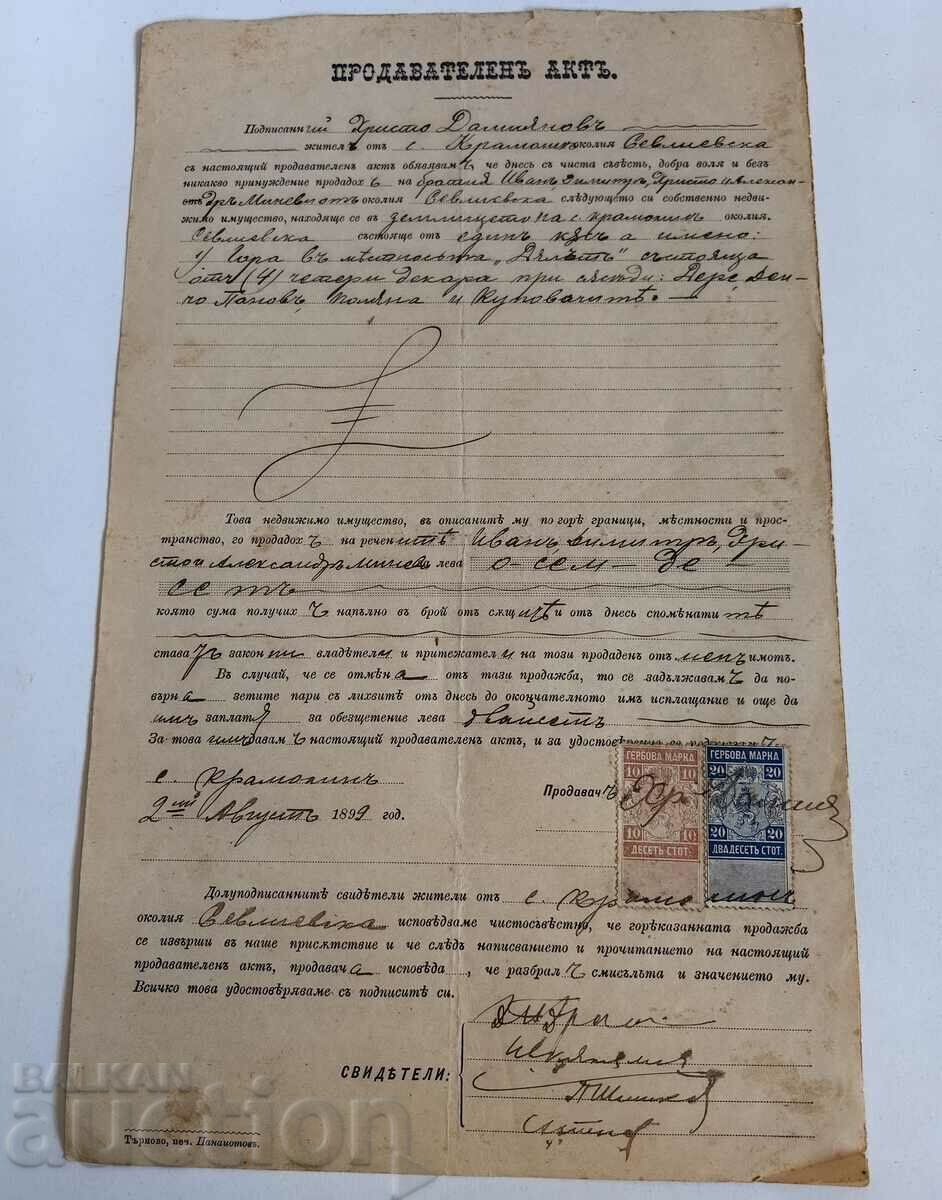 ПРОДАВАТЕЛЕНЪ АКТЪ.
Подписанний Христо Дамияновъ
жителъ от с. Крамолинъ околия Севлиевска
съ настоящий продавателен акт обявявамъ че днесь съ чиста съвѣсть, добра воля и без
никакво принуждение продадохъ на братия Иванъ Димитръ, Христо и Алексан-
дръ Миневи от околия Севлиевска следующето си собственно недви-
жимо имущество, находяще се въ землището на с. Крамолинъ околия.
Севлиевска състояще от единъ късъ а имено:
1) Гора въ мѣстностьта „Дялътъ" състояща
отъ (4) четери декара при съседи: Дере, Ден-
чо Пановъ, поляна и Куповачитѣ. —
Това недвижимо имущество, въ описанитѣ му по горѣ граници, мѣстности и прос-
транство, го продадохъ на реченитѣ Иванъ, Димитръ, Хри-
сто и Александръ Миневи лева о-сем-де-
сетъ
която сума получихъ напълно въ брой от сѫщитѣ и от днесь спомѣнатитѣ
ставатъ законни владѣтели и притежатели на този продаден от менъ имот.
Въ случай, че се отмѣна от тази продажба, то се задължавамъ да по-
върна зетите пари съ лихвитѣ от днесь до окончателното имъ исплащание и още да
имъ заплатя за обезщетение лева дванесть
За това имъ давамъ настоящий продавателен акт, и за удостовѣрение се подписахъ
с. Крамолинъ
2ий Августъ 1899 год.
Продавачъ Хр. Дамия
ГЕРБОВА МАРКА
10 10
10 10
ДЕСЕТЬ СТОТ.
ГЕРБОВА МАРКА
20 20
20 20
ДВАДЕСЕТЬ СТОТ.
Долуподписаннитѣ свидѣтели жители от с. Крамолинъ
околия Севлиевска исповѣдваме чистосъвѣстно, че горѣказанната продажба
се извърши въ наше присѫтствие и че слѣдъ написванието и прочитанието на настоящий
продавателен акт, продавача исповѣда, че разбралъ смисълъта и значението му.
Всичко това удостовѣряваме съ подписитѣ си.
СВИДѢТЕЛИ:
Търново, печ. Панайотовъ.
BALKAN
auction